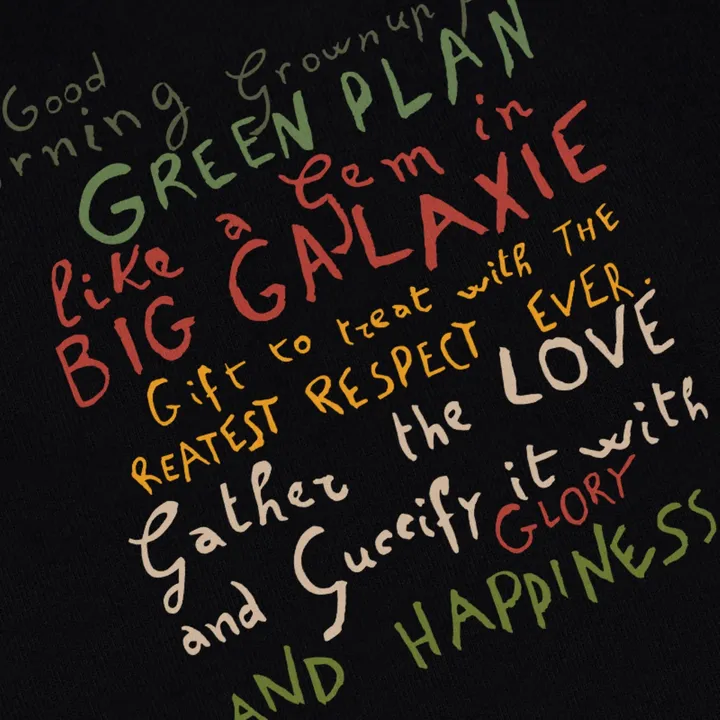 Good
rning Grownup
GREEN PLAN
like a Gem in
BIG GALAXIE
Gift to treat with THE
REATEST RESPECT EVER.
Gather the LOVE
and Guccify it with
GLORY
AND HAPPINESS